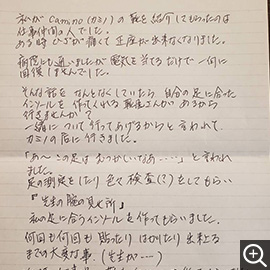 私が Camino(カミノ)の靴を紹介してもらったのは
仕事仲間の人でした。
ある時 ひざが痛くて 正座が出来なくなりました。
病院にも通いましたが 電気を当てるだけで 一向に
回復しませんでした。
そんな話を なんとなしていたら 自分の足に合った
インソールを 作ってくれる 靴屋さんがあるから
行きませんか?
一緒に ついて 行ってあげるからと 言われて
カミノの店に行きました。
「あ〜 この足は むつかしいなあ・・・・」と 言われ
ました。
足の測定をしたり 色々 検査(?)をしてもらい
『先生の腕の見せ所』
私の足に合うインソールを 作ってもらいました。
何回も何回も 貼ったり はがしたり 出来上る
までの大変な事、(先生が・・・・)